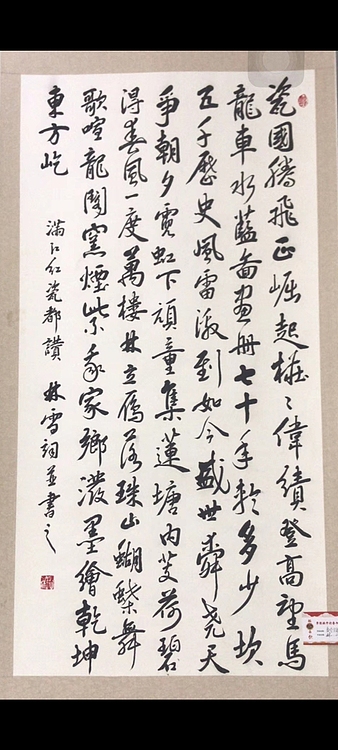 瓷國騰飛正崛起樁々偉績登高望馬
龍車水藍圖畫冊七十年多少坎
五千歷史風雷激到如今盛世舜堯天
爭朝夕霓虹下頑童集蓮塘內芰荷碧
得春風一度萬樓林立雁落珠山蝴蝶舞
歌喧龍閣窯煙紫我家鄉潑墨繪乾坤
東方屹
滿江紅瓷都讚 林雪詞並書之